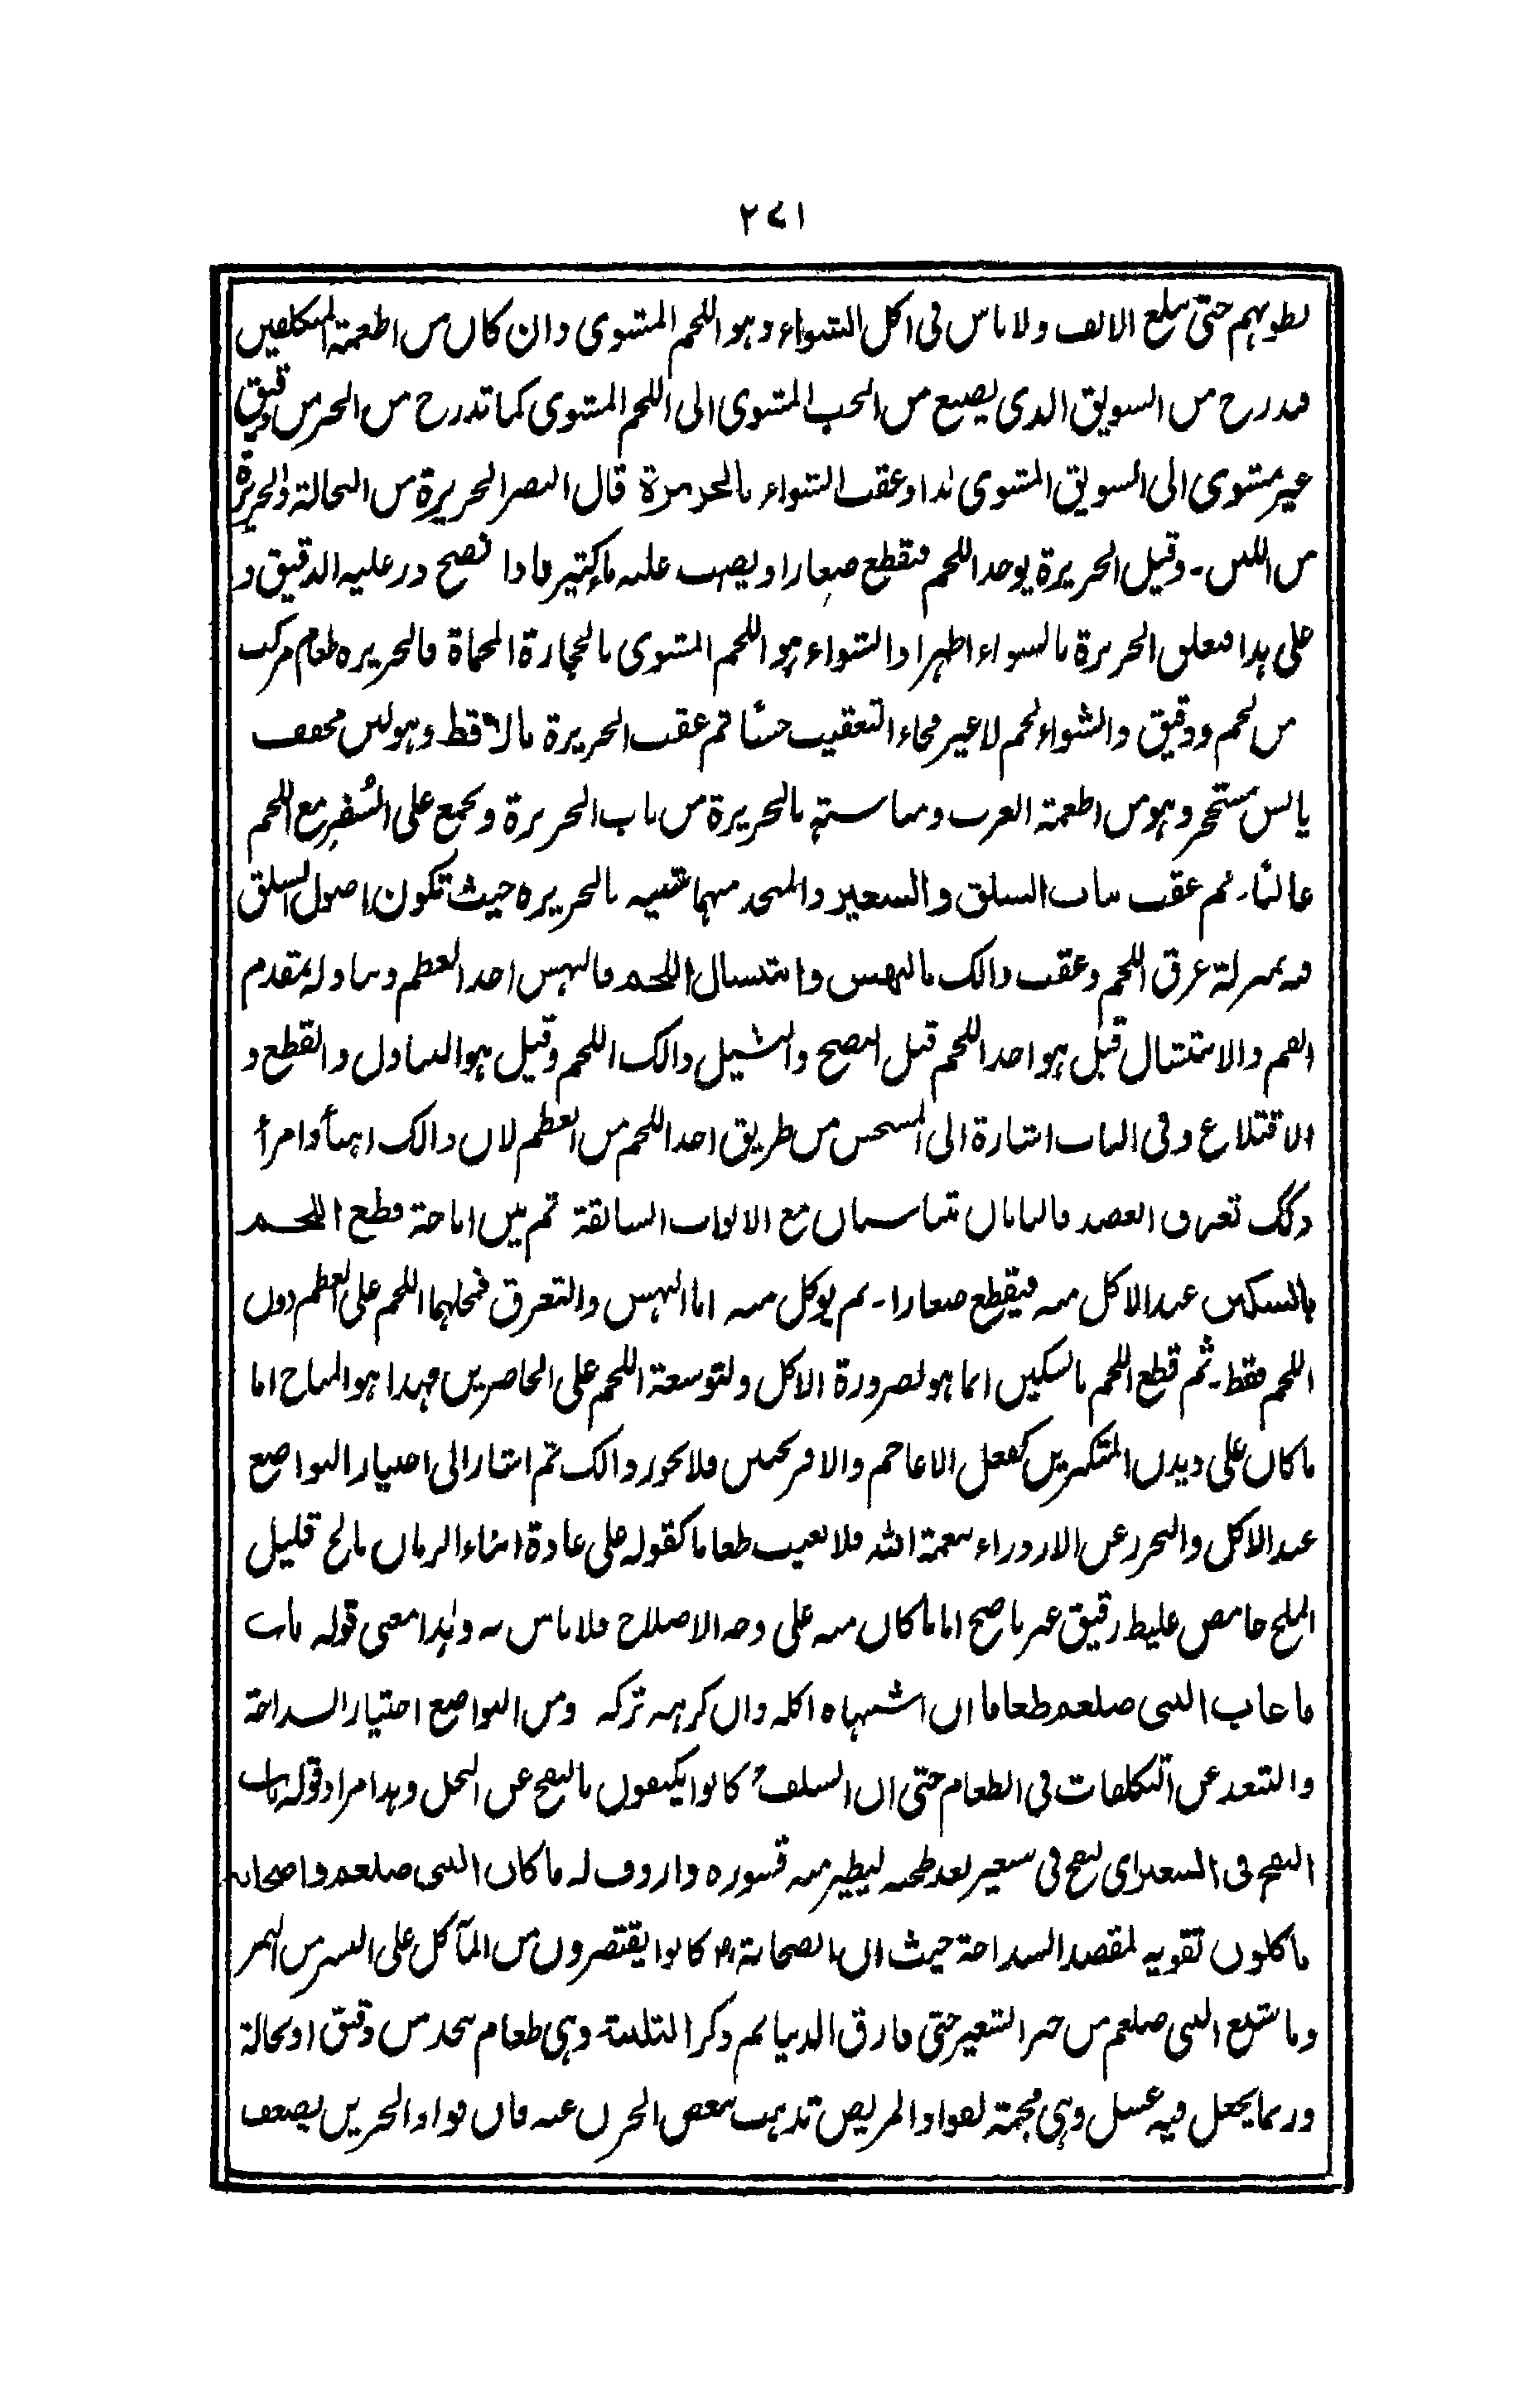 ٢٧١
بطونهم حتى يبلغ الالف ولا باس فى اكل الشواء وهو اللحم المشوى وان كان من اطعمة المتكلفين
فدرج من السويق الذى يصنع من الحب المشوى الى اللحم المشوى كما تدرج من الخبز من دقيق
غير مشوى الى السويق المشوى لذا وعقب الشواء بالخزيرة قال النضر الخزيرة من النخالة والحريرة
من اللبن۔ وقيل الخزيرة يوخذ اللحم فيقطع صغارا ويصب عليه ماء كثير فاذا نضج ذر عليه الدقيق و
على هذا فتعلق الخزيرة بالشواء اظهر اذ الشواء هو اللحم المشوى بالحجارة المحماة فالخزيره طعام مركب
من لحم ودقيق والشواء لحم لا غير فجاء التعقيب حسنا ثم عقب الخزيرة بالاقط وهو لبن مجفف
يابس مستحجر وهو من اطعمة العرب ومناسبته بالخزيرة من باب الحريرة ويجمع على السفر مع اللحم
غالبا۔ ثم عقب بباب السلق والشعير والمتخذ منهما شبيه بالخزيره حيث تكون اصول السلق
فيه بمنزلة عرق اللحم وعقب ذالك بالنهس وانتشال اللحم فالنهس اخذ العظم وتناوله بمقدم
الفم والانتشال قيل هو اخذ اللحم قبل النضج والنشيل ذالك اللحم وقيل هو التناول والقطع و
الاقتلاع وفى الباب اشارة الى المستحسن من طريق اخذ اللحم من العظم لان ذالك اهنأ وامرأ
وكذلك تعرق العضد فالبابان متناسبان مع الابواب السابقة ثم بين اباحة قطع اللحم
بالسكين عند الاكل منه فيقطع صغارا۔ ثم يوكل منه اما النهس والتعرق فمحلهما اللحم على العظم دون
اللحم فقط۔ ثم قطع اللحم بالسكين انما هو لضرورة الاكل ولتوسعة اللحم على الحاضرين فهذا هو المباح اما
ما كان على ديدن المتكبرين كفعل الاعاجم والافرنجيين فلا يجوز ذالك ثم اشار الى اختيار التواضع
عند الاكل والتحرز عن الازدراء بنعمة الله فلا يعيب طعاما كقوله على عادة ابناء الزمان مالح قليل
الملح حامض غليظ رقيق غير ناضج اما ما كان منه على وجه الاصلاح فلا باس به وهذا معنى قوله باب
ما عاب النبى صلعم طعاما ان اشتهاه اكله وان كرهه تركه ومن التواضع اختيار السذاجة
والتبعد عن التكلفات فى الطعام حتى ان السلفؒ كانوا يكتفون بالنفخ عن النخل وهذا مراد قوله باب
النفخ فى الشعير اى نفخ فى شعير بعد طحنه ليطير منه قشوره واردف له ما كان النبى صلعم واصحابه
ياكلون تقويه لمقصد السذاجة حيث ان الصحابةؓ كانوا يقتصرون من المآكل على اليسير من التمر
وما شبع النبى صلعم من خبز الشعير حتى فارق الدنيا ثم ذكر التلبينة وهى طعام يتخذ من دقيق او نخالة
وربما يجعل فيه عسل وهى مجمة لفواد المريض تذهب ببعض الحزن عنه فان فواد الحزين يضعف